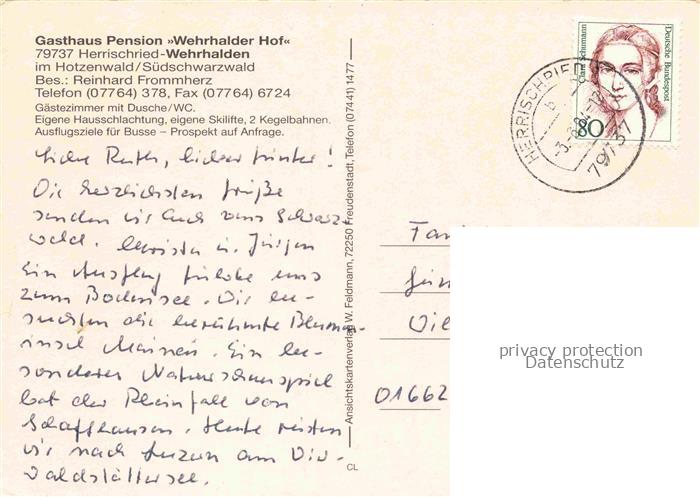 Gasthaus Pension »Wehrhalder Hof«
79737 Herrischried-Wehrhalden
im Hotzenwald/Südschwarzwald
Bes.: Reinhard Frommherz
Telefon (07764) 378, Fax (07764) 6724
Gästezimmer mit Dusche/WC.
Eigene Hausschlachtung, eigene Skilifte, 2 Kegelbahnen.
Ausflugsziele für Busse – Prospekt auf Anfrage.
Liebe Ruth, lieber Günter!
Die herzlichsten Grüße
senden wir Euch vom Schwarz-
wald. u. Jürgen
Ein Ausflug führte uns
zum Bodensee. Wir be-
suchten die berühmte Blumen-
insel Mainau. Ein be-
sonderes Naturschauspiel
bot der Rheinfall von
Schaffhausen. Heute reisten
wir nach Luzern am Vier-
waldstättersee.
Ansichtskartenverlag W. Feldmann, 72250 Freudenstadt, Telefon (07441) 1477
CL
Clara Schumann
Deutsche Bundespost
80
HERRISCHRIED
79737
Fam
Gün
Die
01662
privacy protection
Datenschutz